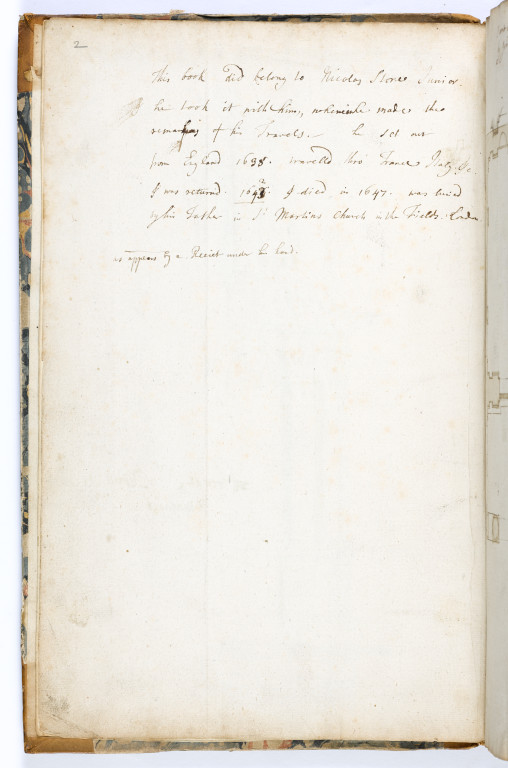 2
This book did belong to Nicolas Stone Junior.
he took it with him, wherein he made the
remarks of his Travels. he set out
from England 1638. travelld thro' France Italy &c.
& was returned. 1642. & died in 1647. was buried
by his Father in St. Martins Church in the Fields London
as appears by a Receict under his hand.